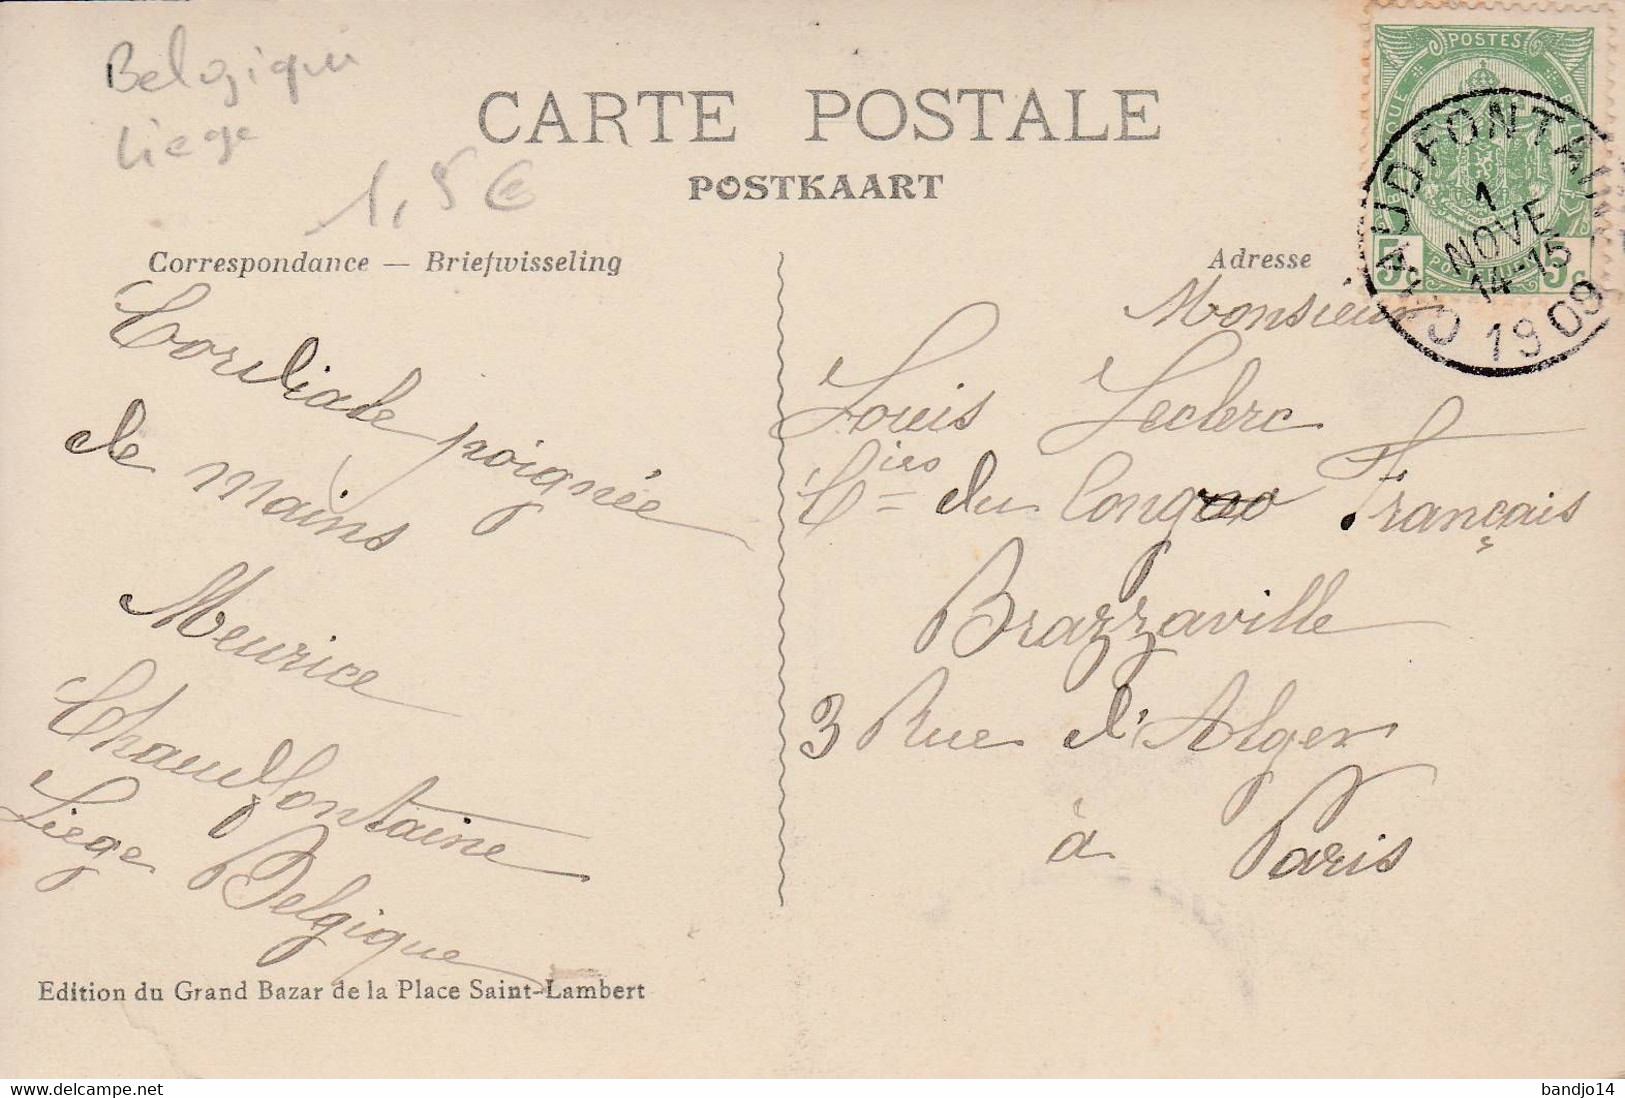 Belgique
Liege
1,5€
CARTE POSTALE
POSTKAART
Correspondance — Briefwisseling
Cordiale poignée
de mains
Meurice
Chaudfontaine
Liege Belgique
Edition du Grand Bazar de la Place Saint-Lambert
POSTES
5c POSTERIJEN 5c
CHAUDFONTAINE
1
NOVE
14-15
1909
Adresse
Monsieur
Louis Leclerc
Cies du Congo Français
Brazzaville
3 Rue d'Alger
à Paris
bandjo14